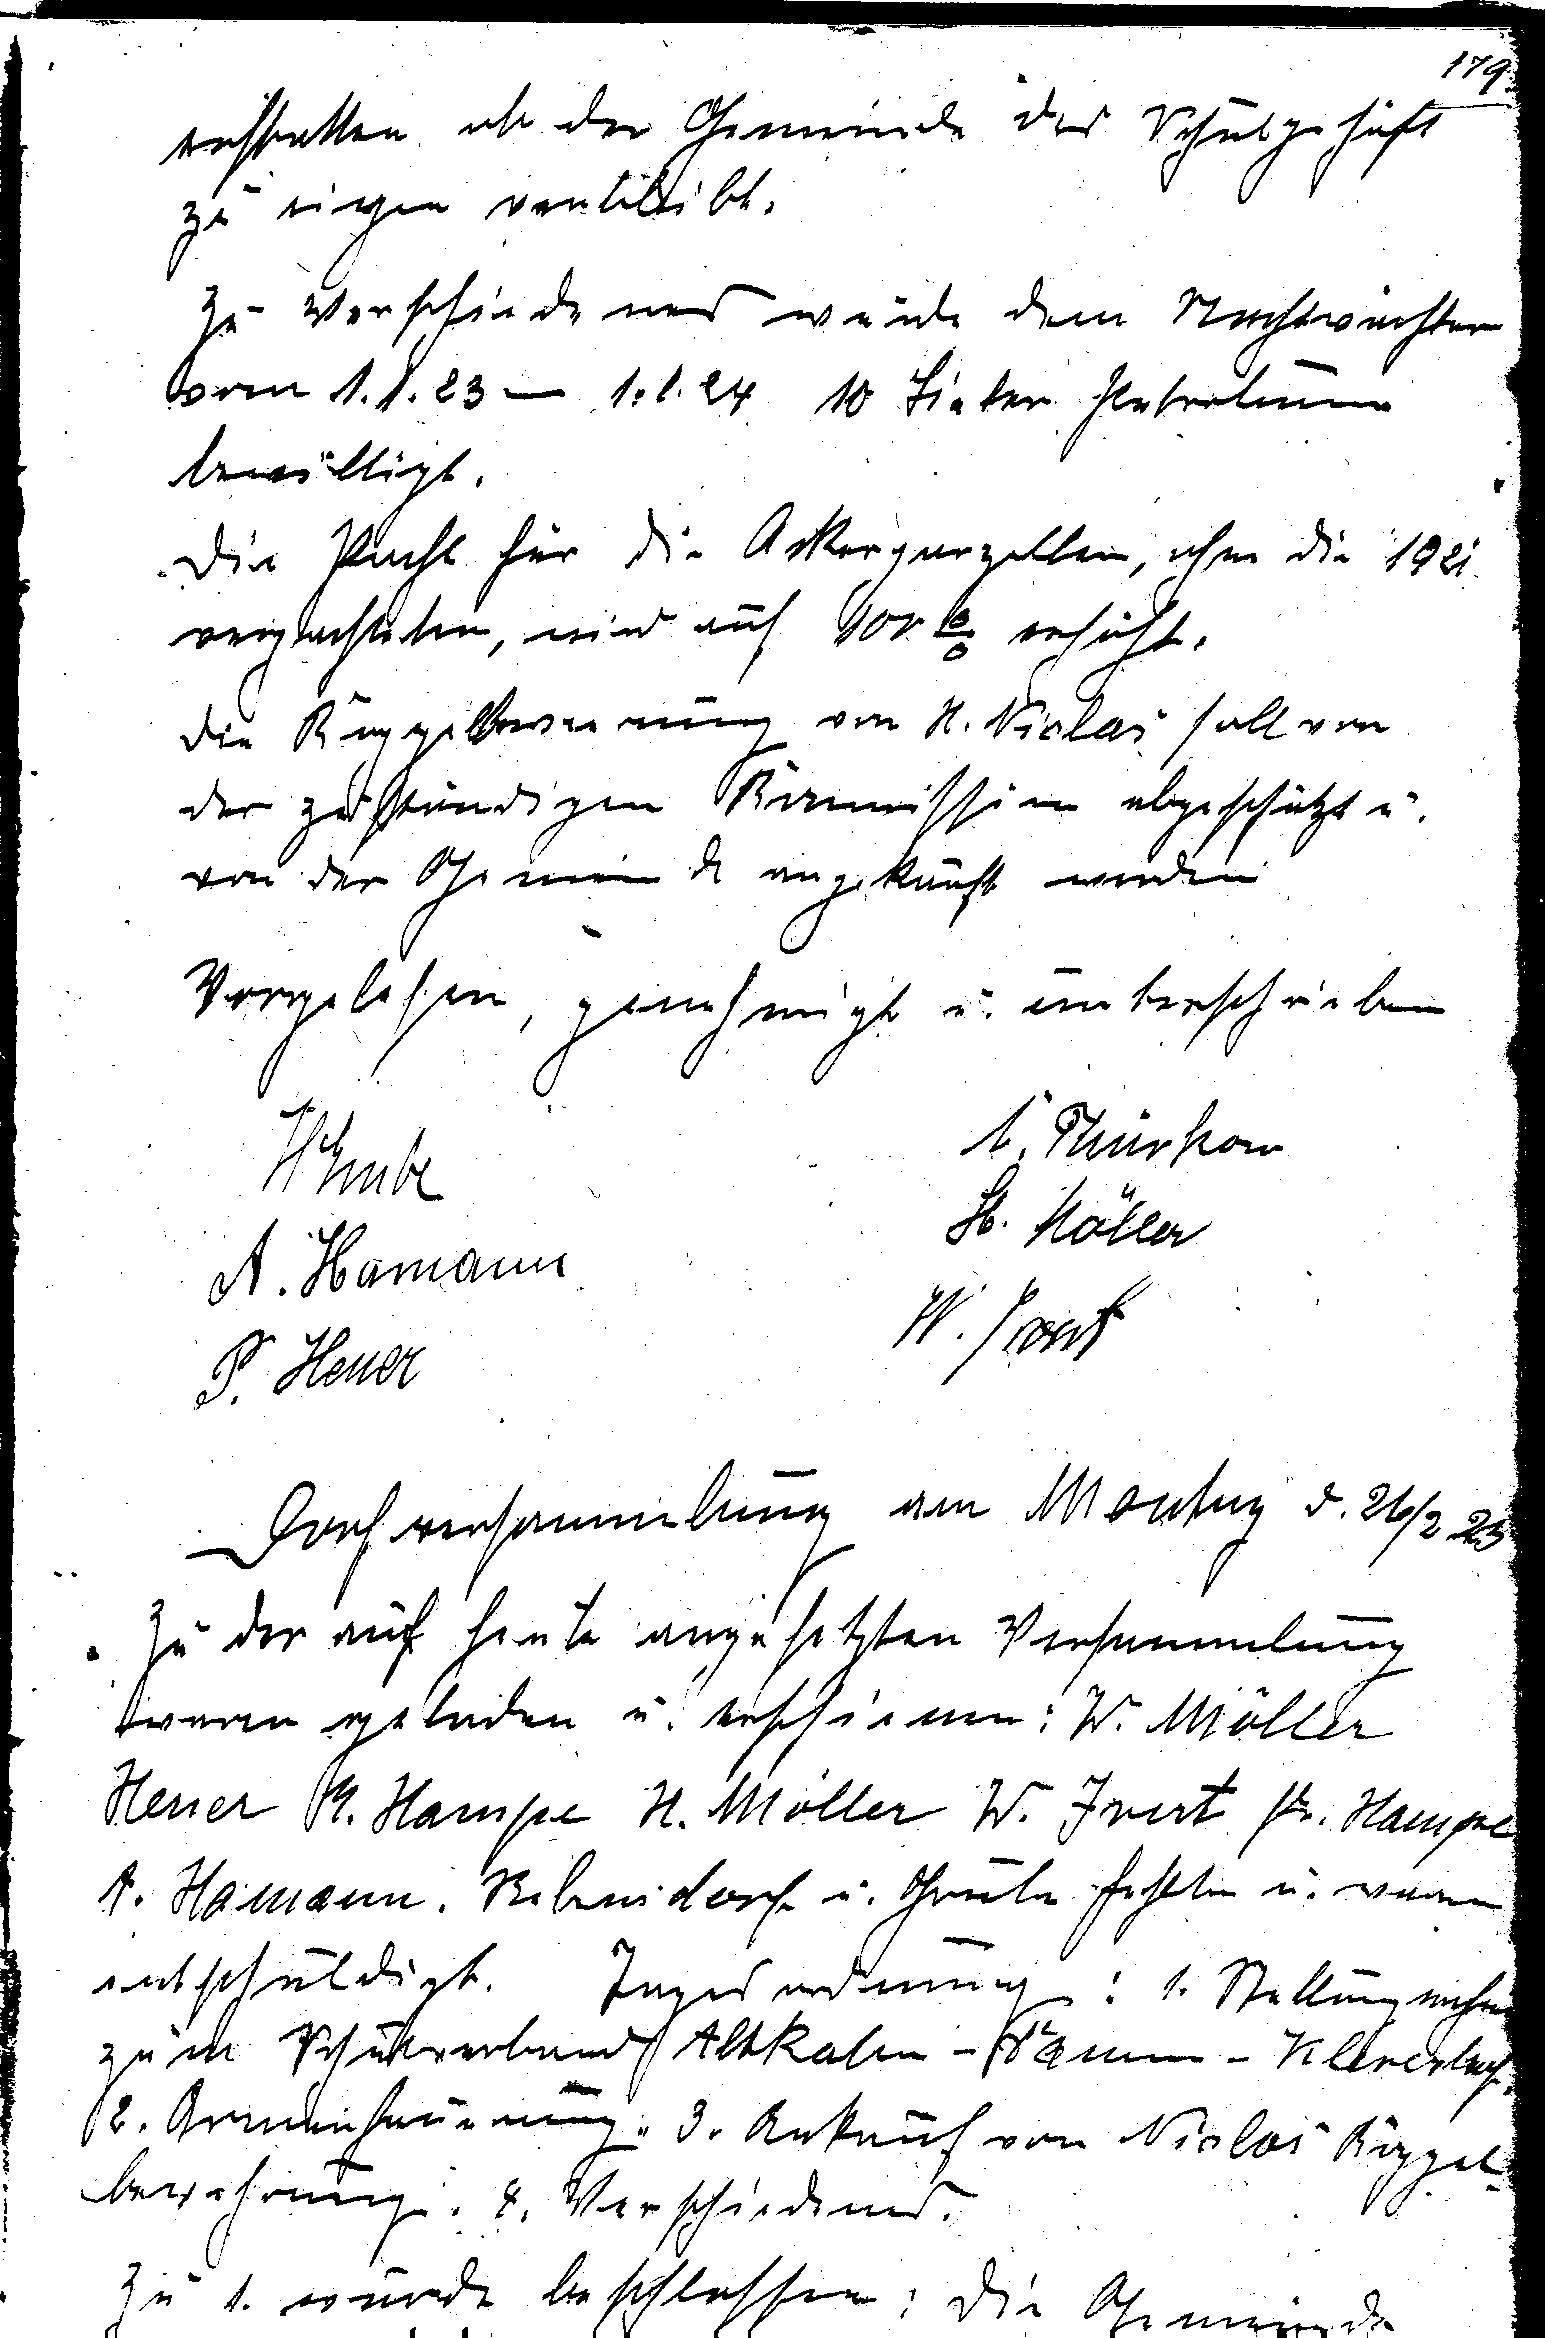 179.
erstatten ob der Gemeinde das Schulgehöft
zu eigen verbleibt.
Zu Verschiedenes wurde dem Nachtwächter
vom 1.1.23 – 1.1.24 10 Lieter Petroleum
bewilligt.
Die Pacht für die Ackerparzellen, ohne die 1921
verpachteten, wird auf 100 % erhöht.
Die Koppelbewerung von H. Niclas soll von
der zuständigen Kommission abgeschätzt u.
von der Gemeinde angekauft werden
Vorgelesen, genehmigt u. unterschrieben
A. Hamann
P. Heuer
Thürkow
H. Möller
W.
Dorfversammlung am Montag d. 26/2 23
Zu der auf heute angesetzten Versammlung
waren geladen u. erschienen: W. Möller
Heuer M. Hampe H. Möller W. Fr. Hampe
A. Hamann. u. Grube fehlten u. waren
entschuldigt. Tagesordnung: 1. Stellungnahme
zum Schulverband Altkalen - Damm - Kleverhof.
2. 3. Ankauf von Niclas Koppel-
bewehrung. 4. Verschiedenes.
Zu 1. wurde beschlossen: Die Gemeinde